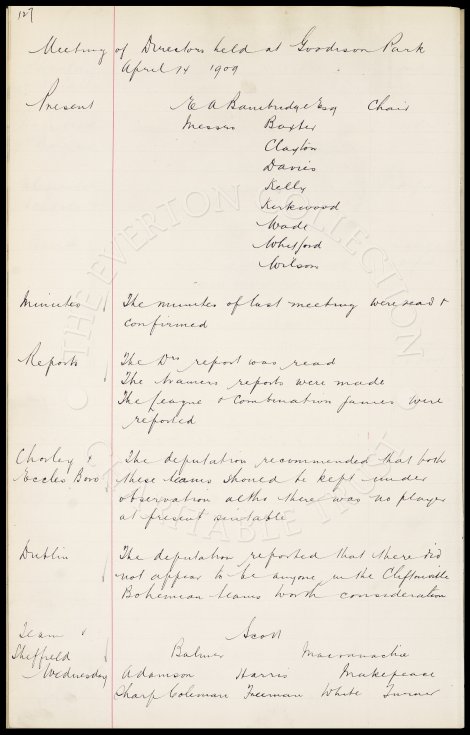 127
Meeting of Directors held at Goodison Park
April 14 1909
Present E A Bainbridge Esq Chair
Messrs Baxter
Clayton
Davies
Kelly
Kirkwood
Wade
Whitford
Wilson
Minutes The minutes of last meeting were read &
confirmed
Reports The Drs report was read
The trainers reports were made
The league & Combination games were
reported
Chorley & The deputation recommended that both
Eccles Boro these teams should be kept under
observation altho there was no player
at present suitable
Dublin The deputation reported that there did
not appear to be anyone in the Cliftonville
Bohemian teams worth consideration
Team v Scott
Sheffield Balmer Macconnachie
Wednesday Adamson Harris Makepeace
Sharp Coleman Freeman White Turner
THE EVERTON COLLECTION
CHARITABLE TRUST